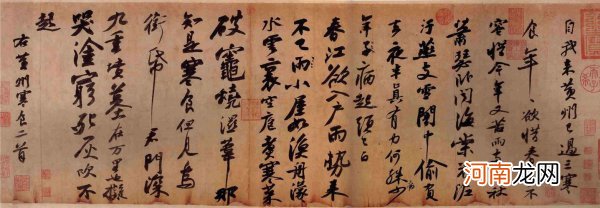 自我來黃州已過三寒
食年々欲惜春春去不
容惜今年又苦雨兩月秋
蕭瑟臥聞海棠花泥
汙燕支雪闇中偷負
去夜半真有力何殊少
年子病起頭已白
春江欲入戶雨勢來
不已雨小屋如漁舟濛々
水雲裏空庖煮寒菜
破竈燒濕葦那
知是寒食但見烏
銜帋君門深
九重墳墓在万里也擬
哭塗窮死灰吹不
起
右黃州寒食二首
河南龙网